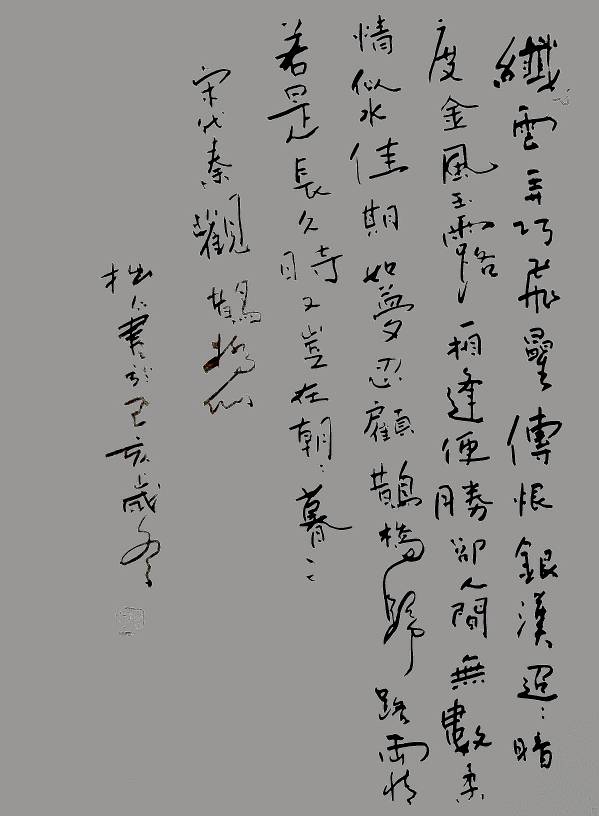 纖雲弄巧飛曐傳恨銀漢迢々暗
度金風玉露一相逢便勝卻人間無數柔
情似水佳期如夢忍顧鵲橋歸路兩情
若是長久時又豈在朝々暮々
宋代秦觀 鵲橋仙
拙人書於己亥歲冬